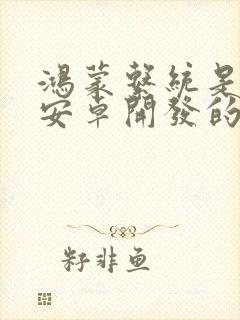 鴻蒙繫統是
安卓開發的
籽非鱼